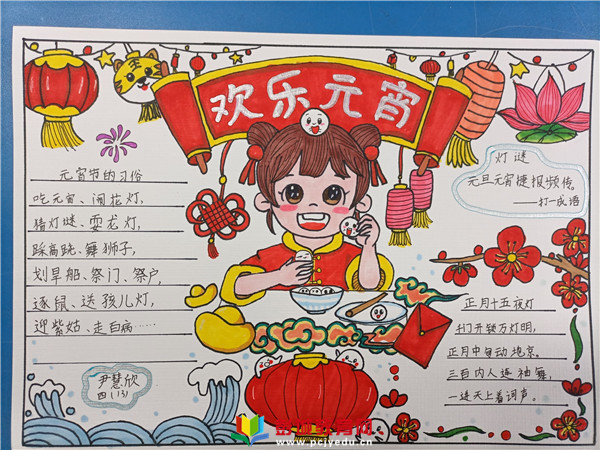 欢乐元宵
元宵节的习俗
吃元宵、闹花灯,
猜灯谜、耍龙灯,
踩高跷、舞狮子,
划旱船、祭门、祭户,
逐鼠、送孩儿灯,
迎紫姑、走白病……
尹慧欣
四(13)
灯谜
元旦元宵捷报频传。
——打一成语
正月十五夜灯
千门开锁万灯明,
正月中旬动地京。
三百内人连袖舞,
一进天上着词声。
www.pcjyedu.cn